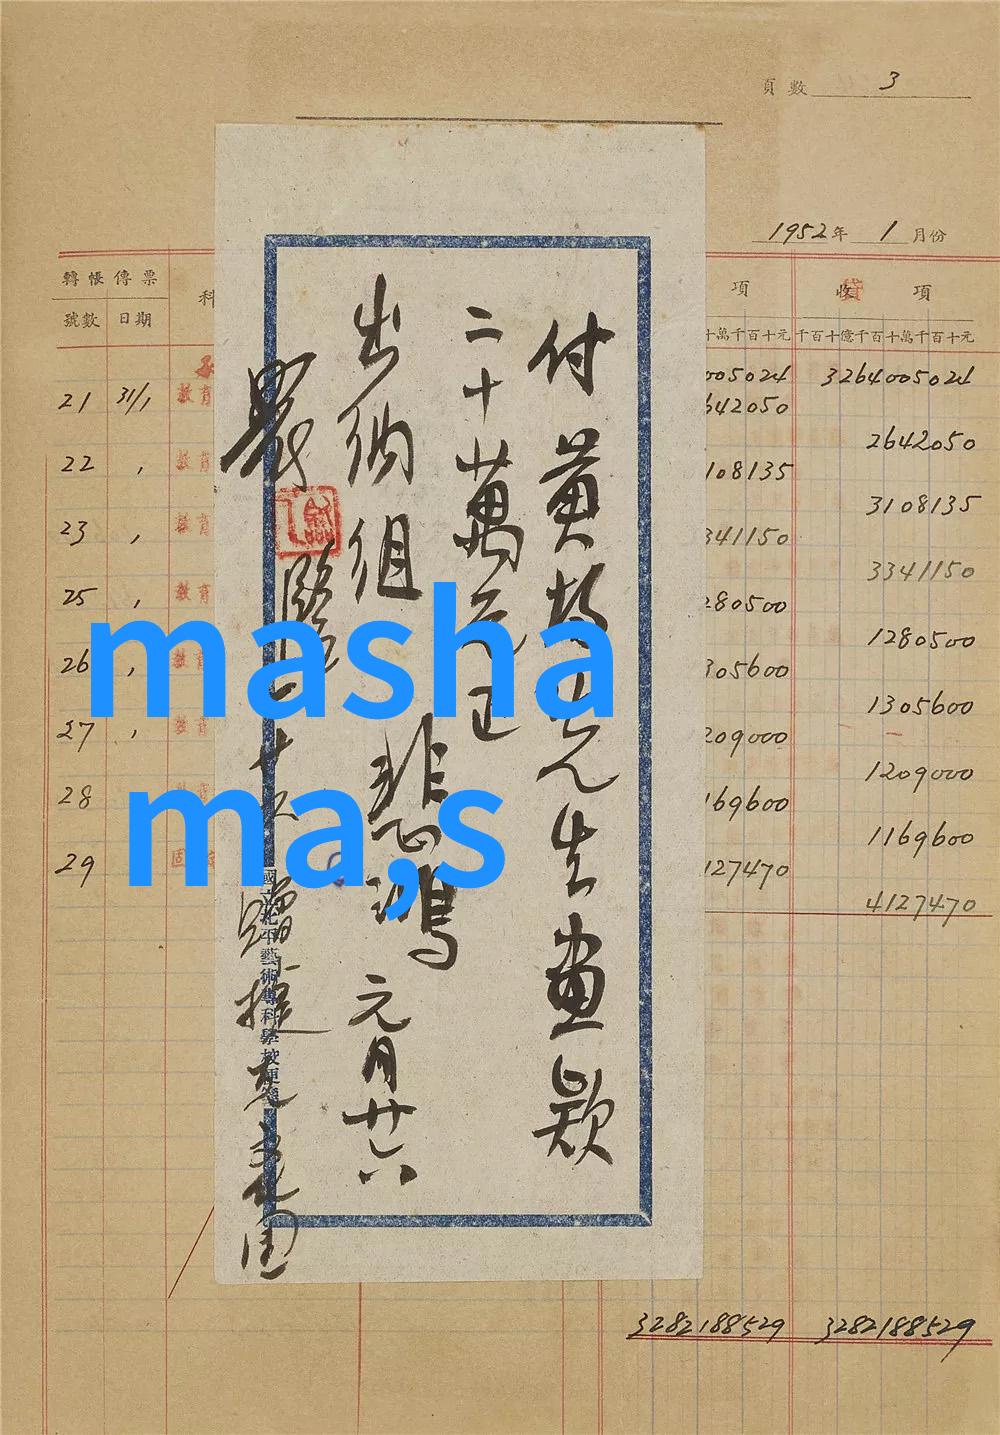 頁數 3
1952年 1月份
轉帳傳票
號數 日期
科
項
收 貸 項
十萬千百十元
千百十億千百十萬千百十元
005024 3264005024
21 31/1 教育 642050
2642050
22 教育 108135
3108135
23 教育 341150
3341150
25 教育 280500
1280500
26 教育 305600
1305600
27 教育 209000
1209000
28 169600
1169600
29 127470
4127470
3282188529 3282188529
付黃
先生畫款
二十萬元正
出納組
悲鴻
元月廿六
國立北平藝術專科學校便箋
masha
ma,s